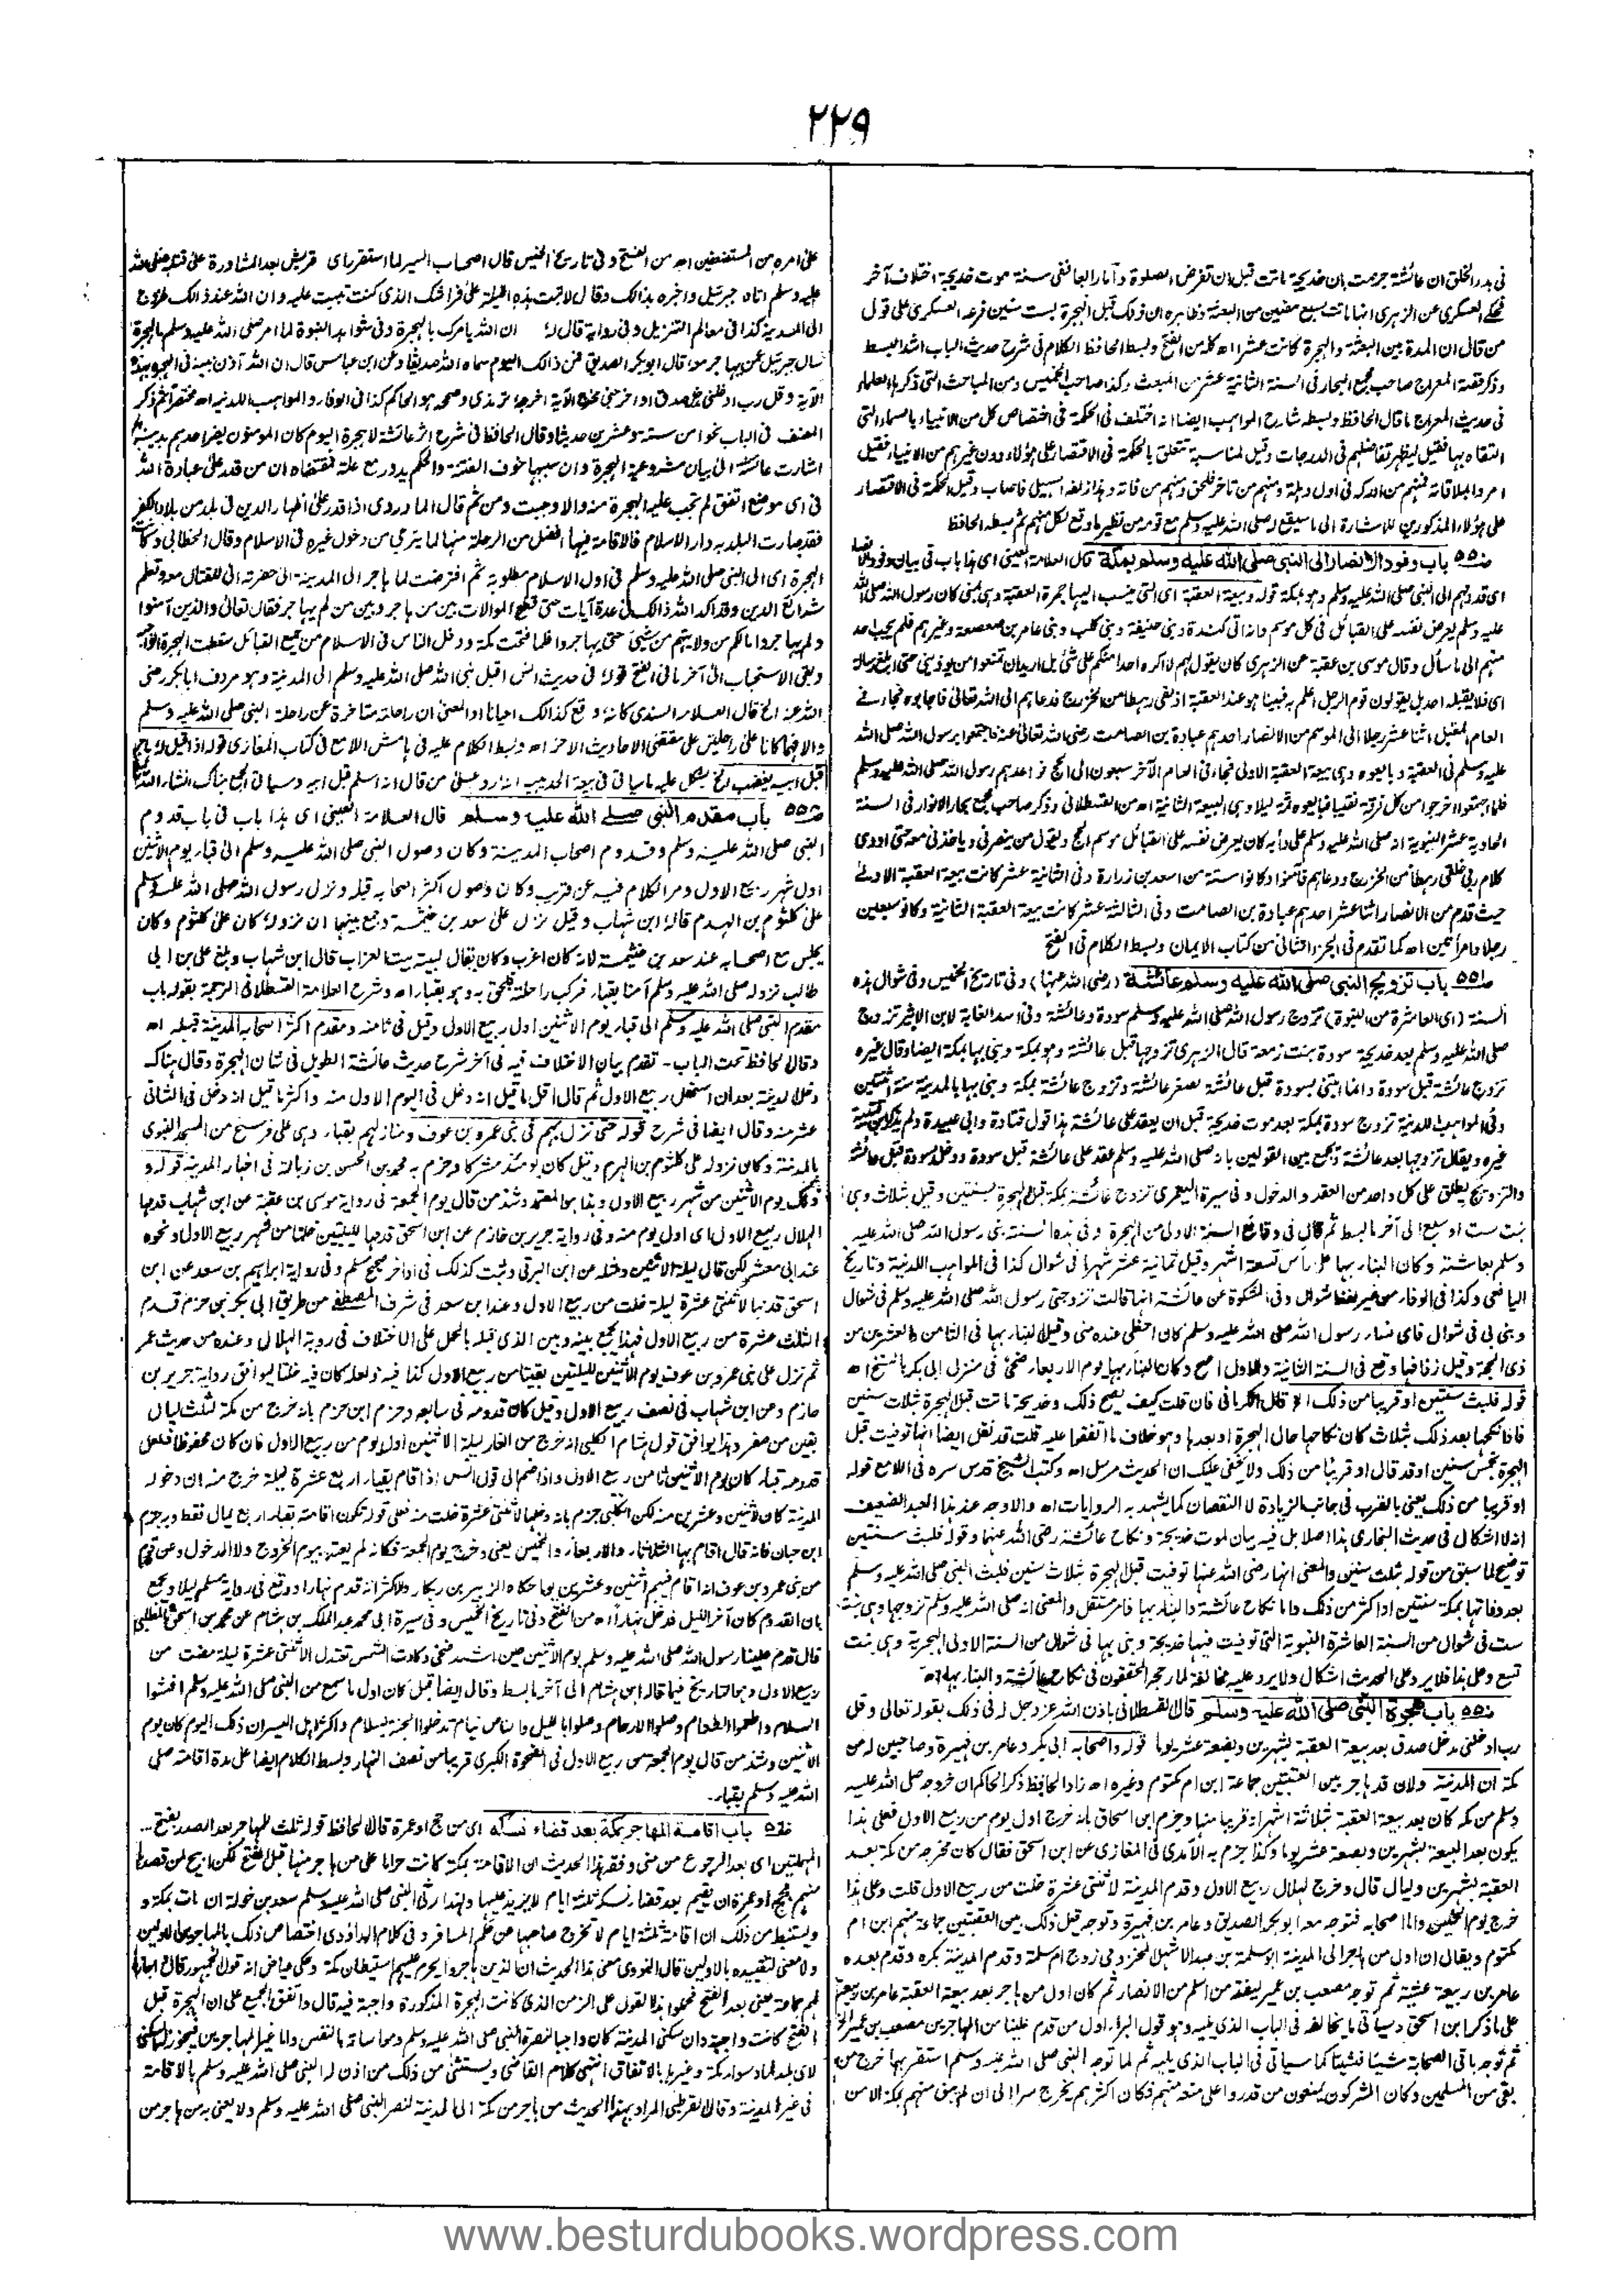 ٢٢٩
فى بدء الخلق ان عائشة جزمت بان خديجة ماتت قبل ان تفرض الصلوة و سنة موت خديجة اختلاف آخر
العسكرى عن الزهرى انها ماتت لسبع مضين من البعثة وظاهره ان ذلك قبل الهجرة بست سنين فرعه العسكرى على قول
من قال ان المدة بين البعثة والهجرة كانت عشرا اھ كله من الفتح وبسط الحافظ الكلام فى شرح حديث الباب اشد البسط
وذكر قصة المعراج صاحب مجمع البحار فى السنة الثانية عشر من المبعث وكذا صاحب الخميس ومن المباحث التى ذكرها العلماء
فى حديث المعراج ما قال الحافظ وبسطه شارح المواهب ايضا انه اختلف فى الحكمة فى اختصاص كل من الانبياء بالسماء التى
التقاه بها فقيل ليظهر تفاضلهم فى الدرجات وقيل لمناسبة تتعلق بالحكمة فى الاقتصار على هؤلاء دون غيرهم من الانبياء فقيل
امروا بملاقاته فمنهم من ادركه فى اول وهلة ومنهم من تاخر فلحق ومنهم من فاته وهذا زيفه السهيلى فاصاب وقيل الحكمة فى الاقتصار
على هؤلاء المذكورين للاشارة الى ما سيقع له صلى الله عليه وسلم مع قومه من نظير ما وقع لكل منهم ثم بسطه الحافظ
باب وفود الانصار الى النبى صلى الله عليه وسلم بمكة قال العلامة العينى اى هذا باب فى بيان وفود الانصار
اى قدومهم الى النبى صلى الله عليه وسلم وهو بمكة قوله وبيعة العقبة اى التى ينسب اليها جمرة العقبة وهى بمنى كان رسول الله صلى الله
عليه وسلم يعرض نفسه على القبائل فى كل موسم وانه اتى كندة وبنى حنيفة وبنى كلب وبنى عامر بن صعصعة وغيرهم فلم يجب احد
منهم الى ما سأل وقال موسى بن عقبة عن الزهرى كان يقول لهم لا اكره احدا منكم على شئ بل اريد ان تمنعوا من يوذينى حتى ابلغ رسالة
ربى فلا يقبله احد بل يقولون قوم الرجل اعلم به فبينا هو عند العقبة اذ لقى رهطا من الخزرج فدعاهم الى الله تعالى فاجابوه فجاء فى
العام المقبل اثنا عشر رجلا الى الموسم من الانصار احدهم عبادة بن الصامت رضى الله تعالى عنه فاجتمعوا برسول الله صلى الله
عليه وسلم فى العقبة وبايعوه وهى بيعة العقبة الاولى فجاء فى العام الآخر سبعون الى الحج فواعدهم رسول الله صلى الله عليه وسلم
فلما اجتمعوا اخرجوا من كل فرقة نقيبا فبايعوه ثمة ليلا وهى البيعة الثانية اھ من القسطلانى وذكر صاحب مجمع بحار الانوار فى السنة
الحادية عشر النبوية انه صلى الله عليه وسلم على دأبه كان يعرض نفسه على القبائل موسم الحج ويقول من ينصرنى وياخذنى معه حتى اودى
كلام ربى فلقى رهطا من الخزرج ودعاهم فآمنوا وكانوا ستة من اسعد بن زرارة وفى الثانية عشر كانت بيعة العقبة الاولى
حيث قدم من الانصار اثنا عشر احدهم عبادة بن الصامت وفى الثالثة عشر كانت بيعة العقبة الثانية وكانوا سبعين
رجلا وامرأتين اھ كما تقدم فى الجزء الثانى من كتاب الايمان وبسط الكلام فى الفتح
باب تزويج النبى صلى الله عليه وسلم عائشة (رضى الله عنها) وفى تاريخ الخميس وفى شوال هذه
السنة (اى العاشرة من النبوة) تزوج رسول الله صلى الله عليه وسلم سودة وعائشة وفى اسد الغابة لابن الاثير تزوج
صلى الله عليه وسلم بعد خديجة سودة بنت زمعة قال الزهرى تزوجها قبل عائشة وهو بمكة وبنى بها بمكة ايضا وقال غيره
تزوج عائشة قبل سودة وانما ابتنى بسودة قبل عائشة لصغر عائشة وتزوج عائشة بمكة وبنى بها بالمدينة سنة اثنتين
وفى المواهب اللدنية تزوج سودة بمكة بعد موت خديجة قبل ان يعقد على عائشة هذا قول قتادة وابى عبيدة ولم يذكر ابن قتيبة
غيره ويقال تزوجها بعد عائشة ويجمع بين القولين بانه صلى الله عليه وسلم عقد على عائشة قبل سودة ودخل بسودة قبل عائشة
والتزويج يطلق على كل واحد من العقد والدخول وفى سيرة اليعمرى تزوج عائشة بمكة قبل الهجرة بسنتين وقيل بثلاث وهى
بنت ست او سبع الى آخر ما بسط ثم قال فى وقائع السنة الاولى من الهجرة وفى هذه السنة بنى رسول الله صلى الله عليه
وسلم بعائشة وكان البناء بها على رأس تسعة اشهر وقيل ثمانية عشر شهرا فى شوال كذا فى المواهب اللدنية وتاريخ
اليافعى وكذا فى الوفاء من غير لفظ شوال وفى المشكوة عن عائشة انها قالت تزوجنى رسول الله صلى الله عليه وسلم فى شوال
وبنى بى فى شوال فاى نساء رسول الله صلى الله عليه وسلم كان احظى عنده منى وقيل البناء بها فى الثامن والعشرين من
ذى الحجة وقيل زفافها وقع فى السنة الثانية والاول اصح وكان البناء بها يوم الاربعاء ضحى فى منزل ابى بكر بالسنح اھ
قوله فلبث سنتين او قريبا من ذلك الخ قال الكرمانى فان قلت كيف يصح ذلك وخديجة ماتت قبل الهجرة بثلاث سنين
فاذا نكحها بعد ذلك بثلاث كان نكاحها حال الهجرة او بعدها وهو خلاف ما اتفقوا عليه قلت قد نقل ايضا انها توفيت قبل
الهجرة بخمس سنين او قد قال او قريبا من ذلك ولا يخفى عليك ان الحديث مرسل اھ وكتب الشيخ قدس سره فى اللامع قوله
او قريبا من ذلك يعنى بالقرب فى جانب الزيادة لا النقصان كما يشهد به الروايات اھ والاوجه عند هذا العبد الضعيف
انه لا اشكال فى حديث البخارى هذا اصلا بل فيه بيان لموت خديجة ونكاح عائشة رضى الله عنهما وقوله فلبث سنتين
توضيح لما سبق من قوله ثلث سنين والمعنى انها رضى الله عنها توفيت قبل الهجرة بثلاث سنين فلبث النبى صلى الله عليه وسلم
بعد وفاتها بمكة سنتين او اكثر من ذلك واما نكاح عائشة والبناء بها فامر مستقل والمعنى انه صلى الله عليه وسلم تزوجها وهى بنت
ست فى شوال من السنة العاشرة النبوية التى توفيت فيها خديجة وبنى بها فى شوال من السنة الاولى الهجرية وهى بنت
تسع وعلى هذا فلا يرد على الحديث اشكال ولا يرد عليه مخالفة لما رجحه المحققون فى نكاح عائشة والبناء بها اھ
باب هجرة النبى صلى الله عليه وسلم قال القسطلانى باذن الله عز وجل له فى ذلك بقوله تعالى وقل
رب ادخلنى مدخل صدق بعد بيعة العقبة بشهرين وبضعة عشر يوما قوله واصحابه ابى بكر وعامر بن فهيرة وصاحبين له من
مكة الى المدينة ولان قد هاجر بين العقبتين جماعة ابن ام مكتوم وغيره اھ زاد الحافظ ذكر الحاكم ان خروجه صلى الله عليه
وسلم من مكة كان بعد بيعة العقبة بثلاثة اشهر او قريبا منها وجزم ابن اسحاق بانه خرج اول يوم من ربيع الاول فعلى هذا
يكون بعد البيعة بشهرين وبضعة عشر يوما وكذا جزم به الاموى فى المغازى عن ابن اسحق فقال كان مخرجه من مكة بعد
العقبة بشهرين وليال قال وخرج لهلال ربيع الاول وقدم المدينة لاثنتى عشرة خلت من ربيع الاول قلت وعلى هذا
خرج يوم الخميس واما اصحابه فتوجه معه ابو بكر الصديق وعامر بن فهيرة وتوجه قبل ذلك بين العقبتين جماعة منهم ابن ام
مكتوم ويقال ان اول من هاجر الى المدينة ابو سلمة بن عبد الاشهل المخزومى زوج ام سلمة وقدم المدينة بكرة وقدم بعده
عامر بن ربيعة عشية ثم توجه مصعب بن عمير ليفقه من اسلم من الانصار ثم كان اول من هاجر بعد بيعة العقبة عامر بن ربيعة
على ما ذكر ابن اسحق وسيأتى ما يخالفه فى الباب الذى يليه وهو قول البراء اول من قدم علينا من المهاجرين مصعب بن عمير الخ
ثم توجه باقى الصحابة شيئا فشيئا كما سيأتى فى الباب الذى يليه ثم لما توجه النبى صلى الله عليه وسلم استقر بها خرج من
بقى من المسلمين وكان المشركون يمنعون من قدروا على منعه منهم فكان اكثرهم يخرج سرا الى ان لم يبق منهم بمكة الا من
على امره من المستضعفين اھ من الفتح وفى تاريخ الخميس قال اصحاب السير لما استقر راى قريش بعد المشاورة على قتله صلى الله
عليه وسلم اتاه جبرئيل واخبره بذالك وقال لا تبت هذه الليلة على فراشك الذى كنت تبيت عليه وان الله عند ذالك خروج
الى المدينة كذا فى معالم التنزيل وفى رواية قال له ان الله يامرك بالهجرة وفى شواهد النبوة لما امر صلى الله عليه وسلم بالهجرة
سال جبرئيل عمن يهاجر معه قال ابو بكر الصديق فمن ذالك اليوم سماه الله صديقا وعن ابن عباس قال ان الله آذن نبيه فى الهجرة بهذه
الآية وقل رب ادخلنى مدخل صدق واخرجنى مخرج الآية اخرجه الترمذى وصححه هو والحاكم كذا فى الوفاء والمواهب اللدنية اھ مختصرا ثم ذكر
المصنف فى الباب نحوا من ستة وعشرين حديثا وقال الحافظ فى شرح اثر عائشة لا هجرة اليوم كان المومنون يفر احدهم بدينه
اشارت عائشة الى بيان مشروعية الهجرة وان سببها خوف الفتنة والحكم يدور مع علته فمقتضاه ان من قدر على عبادة الله
فى اى موضع اتفق لم تجب عليه الهجرة منه والا وجبت ومن ثم قال الماوردى اذا قدر على اظهار الدين فى بلد من بلاد الكفر
فقد صارت البلد به دار الاسلام فالاقامة فيها افضل من الرحلة منها لما يترجى من دخول غيره فى الاسلام وقال الخطابى وكانت
الهجرة اى الى النبى صلى الله عليه وسلم فى اول الاسلام مطلوبة ثم افترضت لما هاجر الى المدينة الى حضرته الى للقتال معه وتعلم
شرائع الدين وقد اكد الله ذالك فى عدة آيات حتى قطع الموالات بين من هاجر وبين من لم يهاجر فقال تعالى والذين آمنوا
ولم يهاجروا مالكم من ولايتهم من شيئ حتى يهاجروا فلما فتحت مكة ودخل الناس فى الاسلام من جميع القبائل سقطت الهجرة الواجبة
وبقى الاستحباب الى آخر ما فى الفتح قوله فى حديث انس اقبل نبى الله صلى الله عليه وسلم الى المدينة وهو مردف ابا بكر رضى
الله عنه الخ قال العلامة السندى كانه وقع كذالك احيانا او المعنى ان راحلته متاخرة عن راحلة النبى صلى الله عليه وسلم
والا فهما كانا على راحلتين على مقتضى الاحاديث الاخر اھ وبسط الكلام عليه فى هامش اللامع فى كتاب المغازى قوله اذا قيل له هاجر
قبل ابيه يغضب الخ يشكل عليه ما سياتى فى بيعة الحديبية انه رد على من قال انه اسلم قبل ابيه وسياتى الجمع هناك انشاء الله تعالى
باب مقدم النبى صلى الله عليه وسلم قال العلامة العينى اى هذا باب فى باب قدوم
النبى صلى الله عليه وسلم وقدوم اصحاب المدينة وكان وصول النبى صلى الله عليه وسلم الى قباء يوم الاثنين
اول شهر ربيع الاول ومر الكلام فيه عن قريب وكان وصول اكثر اصحابه قبله ونزل رسول الله صلى الله عليه وسلم
على كلثوم بن الهدم قاله ابن شهاب وقيل نزل على سعد بن خيثمة وجمع بينهما ان نزوله كان على كلثوم وكان
يجلس مع اصحابه عند سعد بن خيثمة لانه كان اعزب وكان يقال لبيته بيت العزاب قال ابن شهاب وبلغ على بن ابى
طالب نزوله صلى الله عليه وسلم آمنا بقباء فركب راحلته فلحق به وهو بقباء اھ وشرح العلامة القسطلانى الترجمة بقوله باب
مقدم النبى صلى الله عليه وسلم الى قباء يوم الاثنين اول ربيع الاول وقيل فى ثامنه ومقدم اكثر اصحابه المدينة قبله اھ
وقال الحافظ تحت الباب - تقدم بيان الاختلاف فيه فى آخر شرح حديث عائشة الطويل فى شان الهجرة وقال هناك
دخل المدينة بعد ان استهل ربيع الاول ثم قال اقل ما قيل انه دخل فى اليوم الاول منه واكثر ما قيل انه دخل فى الثانى
عشر منه وقال ايضا فى شرح قوله حتى نزل بهم فى بنى عمرو بن عوف ومنازلهم بقباء وهى على فرسخ من المسجد النبوى
بالمدينة وكان نزوله على كلثوم بن الهدم وقيل كان يومئذ مشركا وجزم به محمد بن الحسن بن زبالة فى اخبار المدينة قوله و
ذلك يوم الاثنين من شهر ربيع الاول وهذا هو المعتمد وشذ من قال يوم الجمعة فى رواية موسى بن عقبة عن ابن شهاب قدمها
الهلال ربيع الاول اى اول يوم منه وفى رواية جرير بن حازم عن ابن اسحق قدمها لليلتين خلتا من شهر ربيع الاول ونحوه
عند ابى معشر لكن قال ليلة الاثنين ومثله عن ابن البرقى وثبت كذلك فى اواخر صحيح مسلم وفى رواية ابراهيم بن سعد عن ابن
اسحق قدمها لاثنتى عشرة ليلة خلت من ربيع الاول وعند ابن سعد فى شرف المصطفى من طريق ابى بكر بن حزم قدم
الثلث عشرة من ربيع الاول فهذا يجمع بينه وبين الذى قبله بالحمل على الاختلاف فى روية الهلال وعنده من حديث عمر
ثم نزل على بنى عمرو بن عوف يوم الاثنين لليلتين بقيتا من ربيع الاول كذا فيه ولعله كان فيه خلتا ليوافق رواية جرير بن
حازم وعن ابن شهاب فى نصف ربيع الاول وقيل كان قدومه فى سابعه وجزم ابن حزم بانه خرج من مكة لثلث ليال
بقين من صفر وهذا يوافق قول هشام الكلبى انه خرج من الغار ليلة الاثنين اول يوم من ربيع الاول فان كان محفوظا فلعل
قدومه قباء كان يوم الاثنين ثامن ربيع الاول واذا ضم الى قول انس اذا اقام بقباء اربع عشرة ليلة خرج منه ان دخوله
المدينة كان لاثنين وعشرين منه لكن الكلبى جزم بانه دخلها لاثنتى عشرة خلت منه فعلى قوله تكون اقامته بقباء اربع ليال فقط وبه جزم
ابن حبان فانه قال اقام بها الثلاثاء والاربعاء والخميس يعنى وخرج يوم الجمعة فكانه لم يعتد بيوم الخروج ولا الدخول وعن قوم
من بنى عمرو بن عوف انه اقام فيهم اثنين وعشرين يوما حكاه الزبير بن بكار والاكثر انه قدم نهارا ووقع فى رواية مسلم ليلا ويجمع
بان القدوم كان آخر الليل فدخل نهارا اھ من الفتح وفى تاريخ الخميس وفى سيرة ابى محمد عبد الملك بن هشام عن محمد بن اسحق المطلبى
قال قدم علينا رسول الله صلى الله عليه وسلم يوم الاثنين حين اشتد الضحى وكادت الشمس تعتدل لاثنتى عشرة ليلة مضت من
ربيع الاول وهو التاريخ فيما قاله ابن هشام الى آخر ما بسط وقال ايضا قيل كان اول ما سمع من النبى صلى الله عليه وسلم افشوا
السلام واطعموا الطعام وصلوا الارحام وصلوا بالليل والناس نيام تدخلوا الجنة بسلام واكثر اهل السير ان ذلك اليوم كان يوم
الاثنين وشذ من قال يوم الجمعة من ربيع الاول فى الضحوة الكبرى قريبا من نصف النهار وبسط الكلام ايضا على مدة اقامته صلى
الله عليه وسلم بقباء.
باب اقامة المهاجر بمكة بعد قضاء نسكه اى من حج او عمرة قال الحافظ قوله ثلث للمهاجر بعد الصدر بفتح
المهملتين اى بعد الرجوع من منى وفقه هذا الحديث ان الاقامة بمكة كانت حراما على من هاجر منها قبل الفتح لكن ابيح لمن قصدها
منهم بحج او عمرة ان يقيم بعد قضاء نسكه ثلثة ايام لا يزيد عليها ولهذا رثى النبى صلى الله عليه وسلم سعد بن خولة ان مات بمكة و
يستنبط من ذلك ان اقامة ثلثة ايام لا تخرج صاحبها عن حكم المسافر وفى كلام الداؤدى اختصاص ذلك بالمهاجرين الاولين
ولا معنى لتقييده بالاولين قال النووى معنى هذا الحديث ان الذين هاجروا يحرم عليهم استيطان مكة وحكى عياض انه قول الجمهور قال واجاز
لهم جماعة يعنى بعد الفتح فحملوا هذا القول على الزمن الذى كانت الهجرة المذكورة واجبة فيه قال واتفق الجميع على ان الهجرة قبل
الفتح كانت واجبة وان سكنى المدينة كان واجبا لنصرة النبى صلى الله عليه وسلم ومواساته بالنفس واما غير المهاجرين فيجوز له سكنى
اى بلد اراد سواء مكة وغيرها بالاتفاق انتهى كلام القاضى ويستثنى من ذلك من اذن له النبى صلى الله عليه وسلم بالاقامة
فى غير المدينة وقال القرطبى المراد بهذا الحديث من هاجر من مكة الى المدينة لنصر النبى صلى الله عليه وسلم ولا يعنى به من هاجر من
www.besturdubooks.wordpress.com